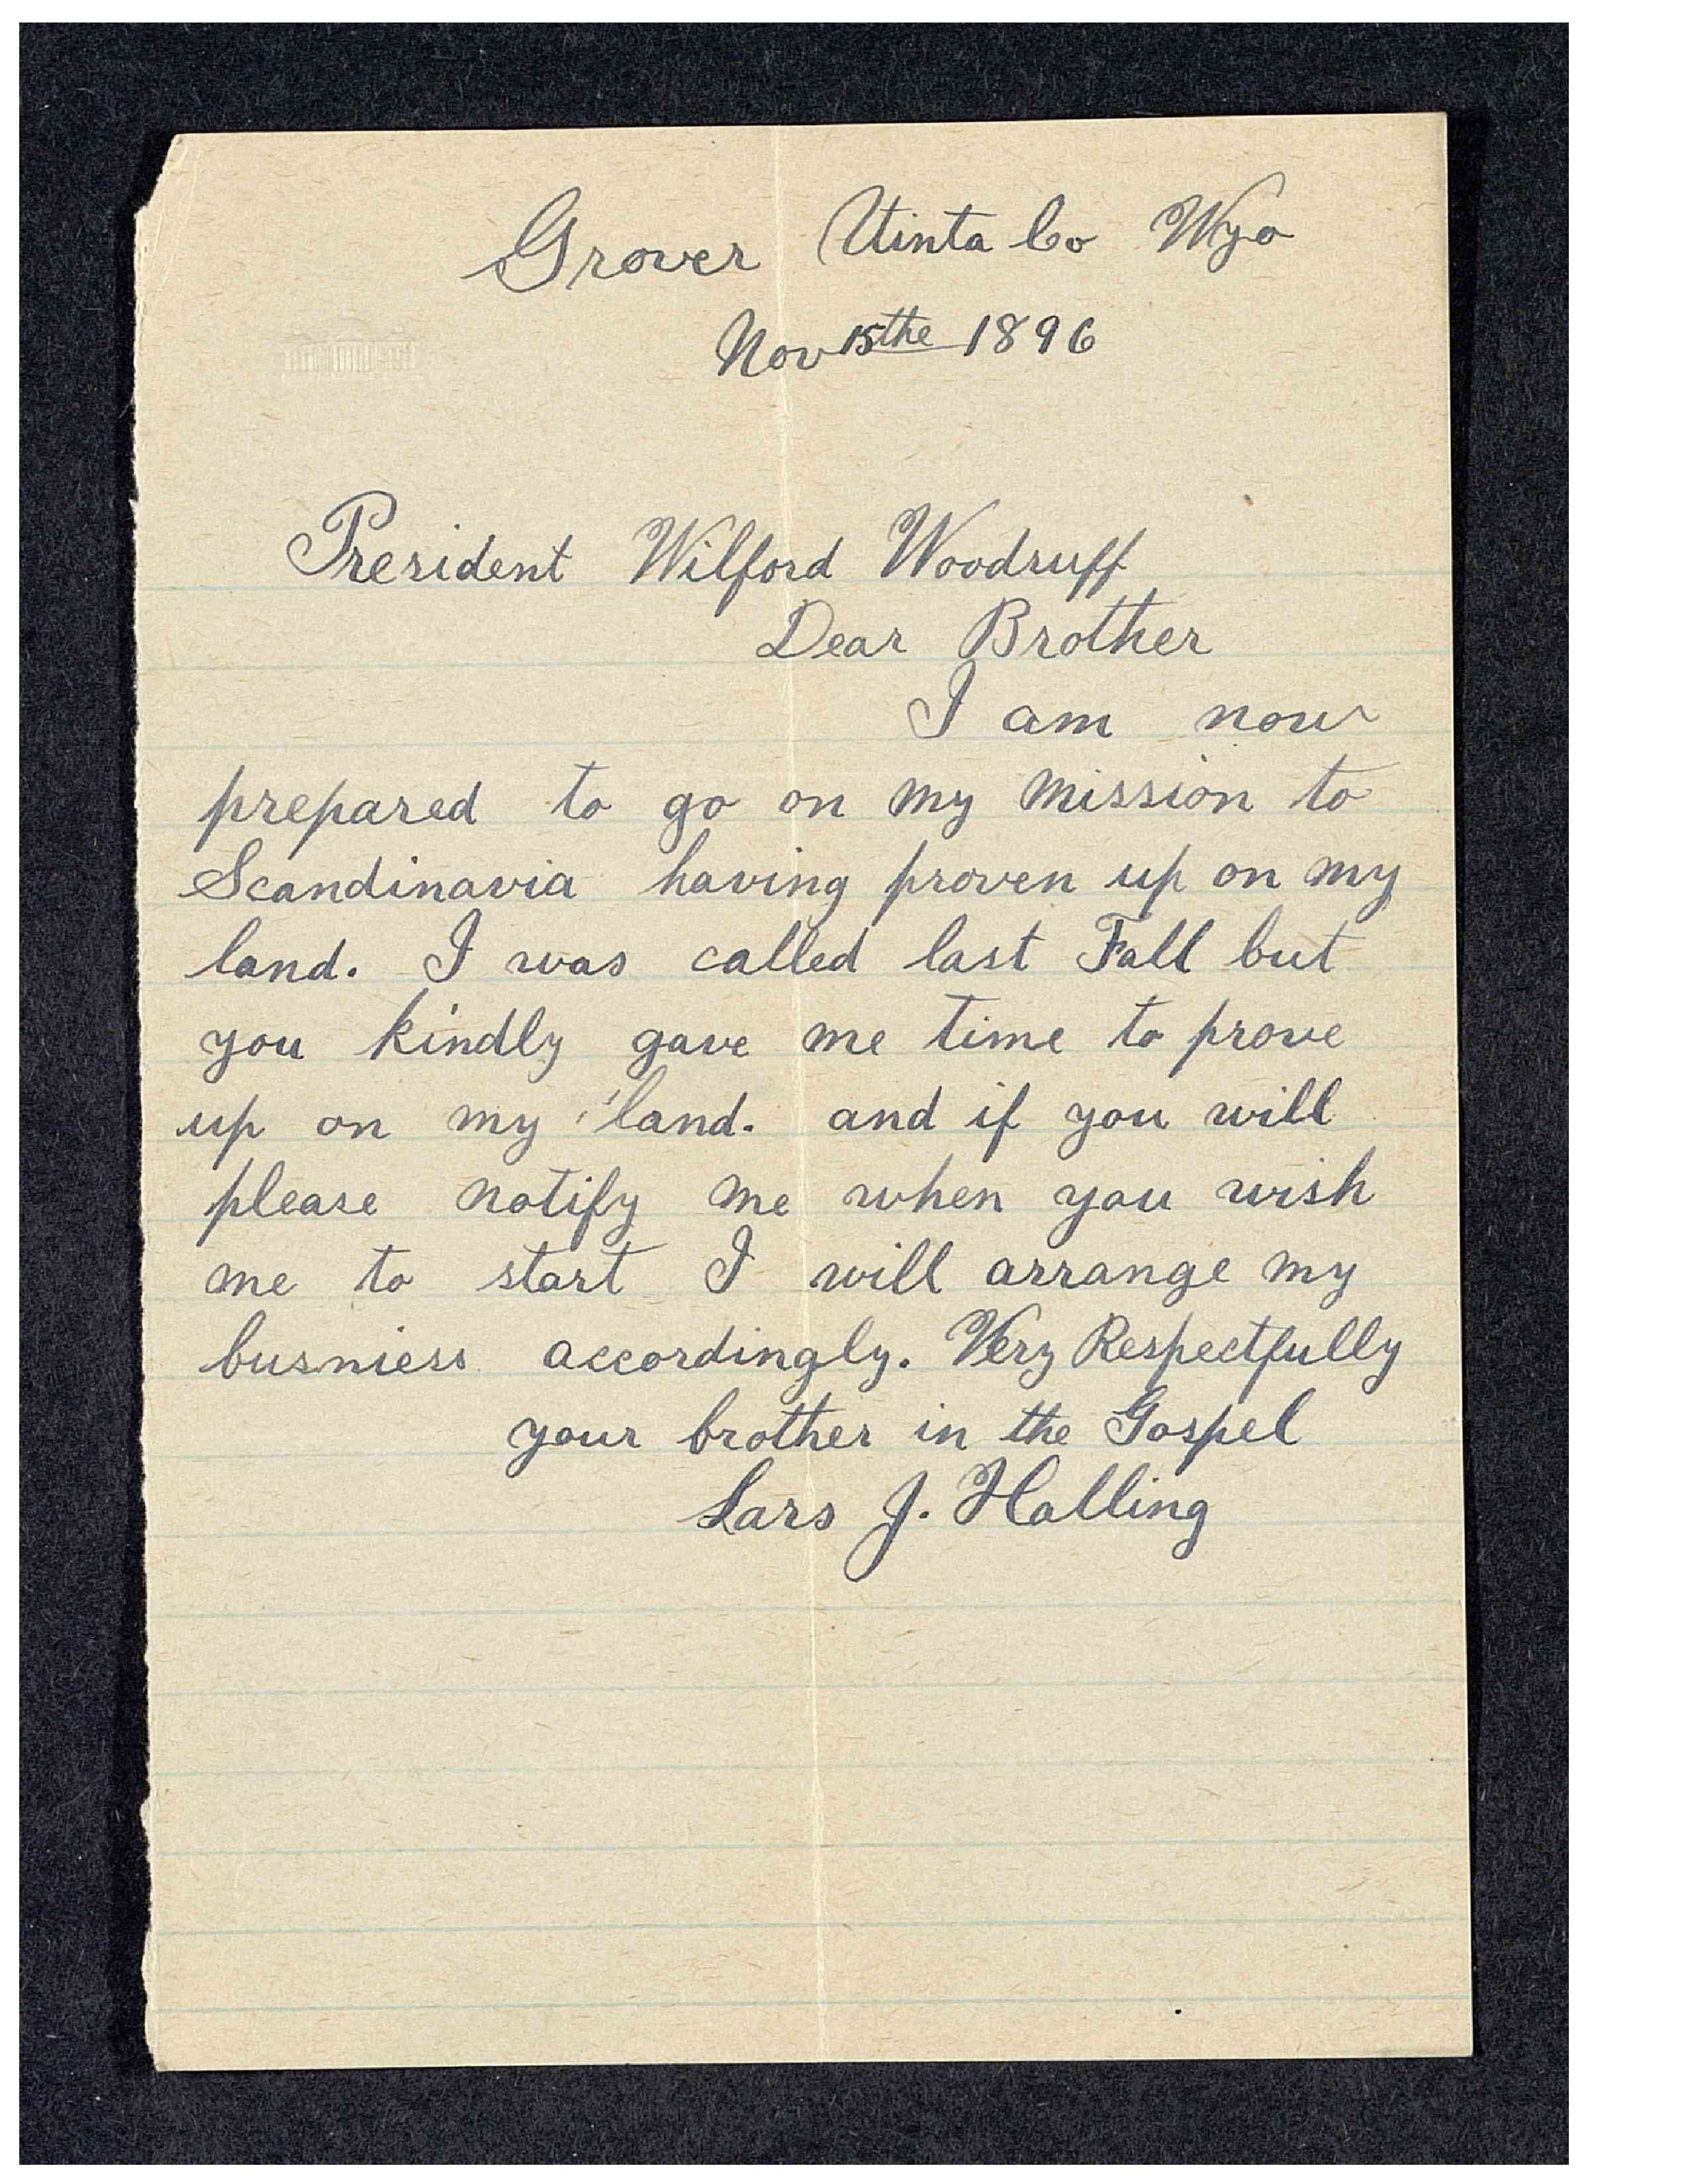 Grover Uinta Co Wyo
Nov 15the 1896
President Wilford Woodruff
Dear Brother
I am now
prepared to go on my mission to
Scandinavia having proven up on my
land. I was called last Fall but
you kindly gave me time to prove
up on my land. and if you will
please notify me when you wish
me to start I will arrange my
busniess accordingly. Very Respectfully
your brother in the Gospel
Lars J. Halling